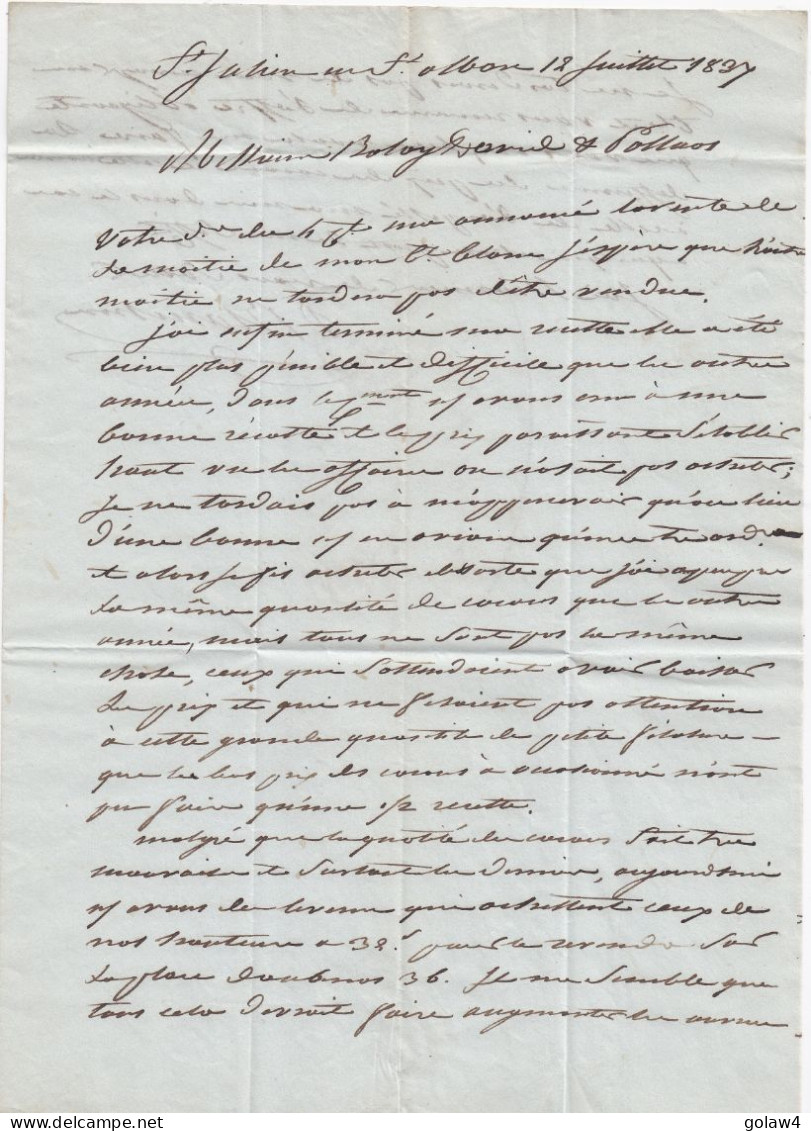 St Julien en St alban 12 Juillet 1837
Messieurs David &
Votre du ct me annonce la vente de
la moitié de mon Bt blanc J'espère que l'autre
moitié ne tardera pas d'être vendue.
J'ai enfin terminé ma recette elle a été
bien plus pénible et difficile que les autres
année, Dans le nt avons cru à une
bonne récolte et les prix paroissant s'établir
haut vu les affaires on n'osait pas acheter;
Je ne tardais pas à m'appercevoir qu'au lieu
d'une bonne n/ en avions qu'une tre
et alors je fis acheter desorte que j'ai à peu près
la même quantité de cocons que les autres
année, mais tous ne sont pas la même
chose, ceux qui s'attendoient avoir baisse
le prix et qui ne faisaient pas attention
à cette grande quantité de petite filature —
que le bas prix des cocons à occasionné n'ont
pu faire qu'une 1/2 recette.
malgré que la qualité des cocons soit tres
mauvaise et surtout les dernier, aujourdhui
n/ avons des qui achettent ceux de
nos hauteurs à 32s pour le revendre sur
la place d'aubenas 36. Il me semble que
tous cela devroit faire augmenter les
golaw4
delcampe.net